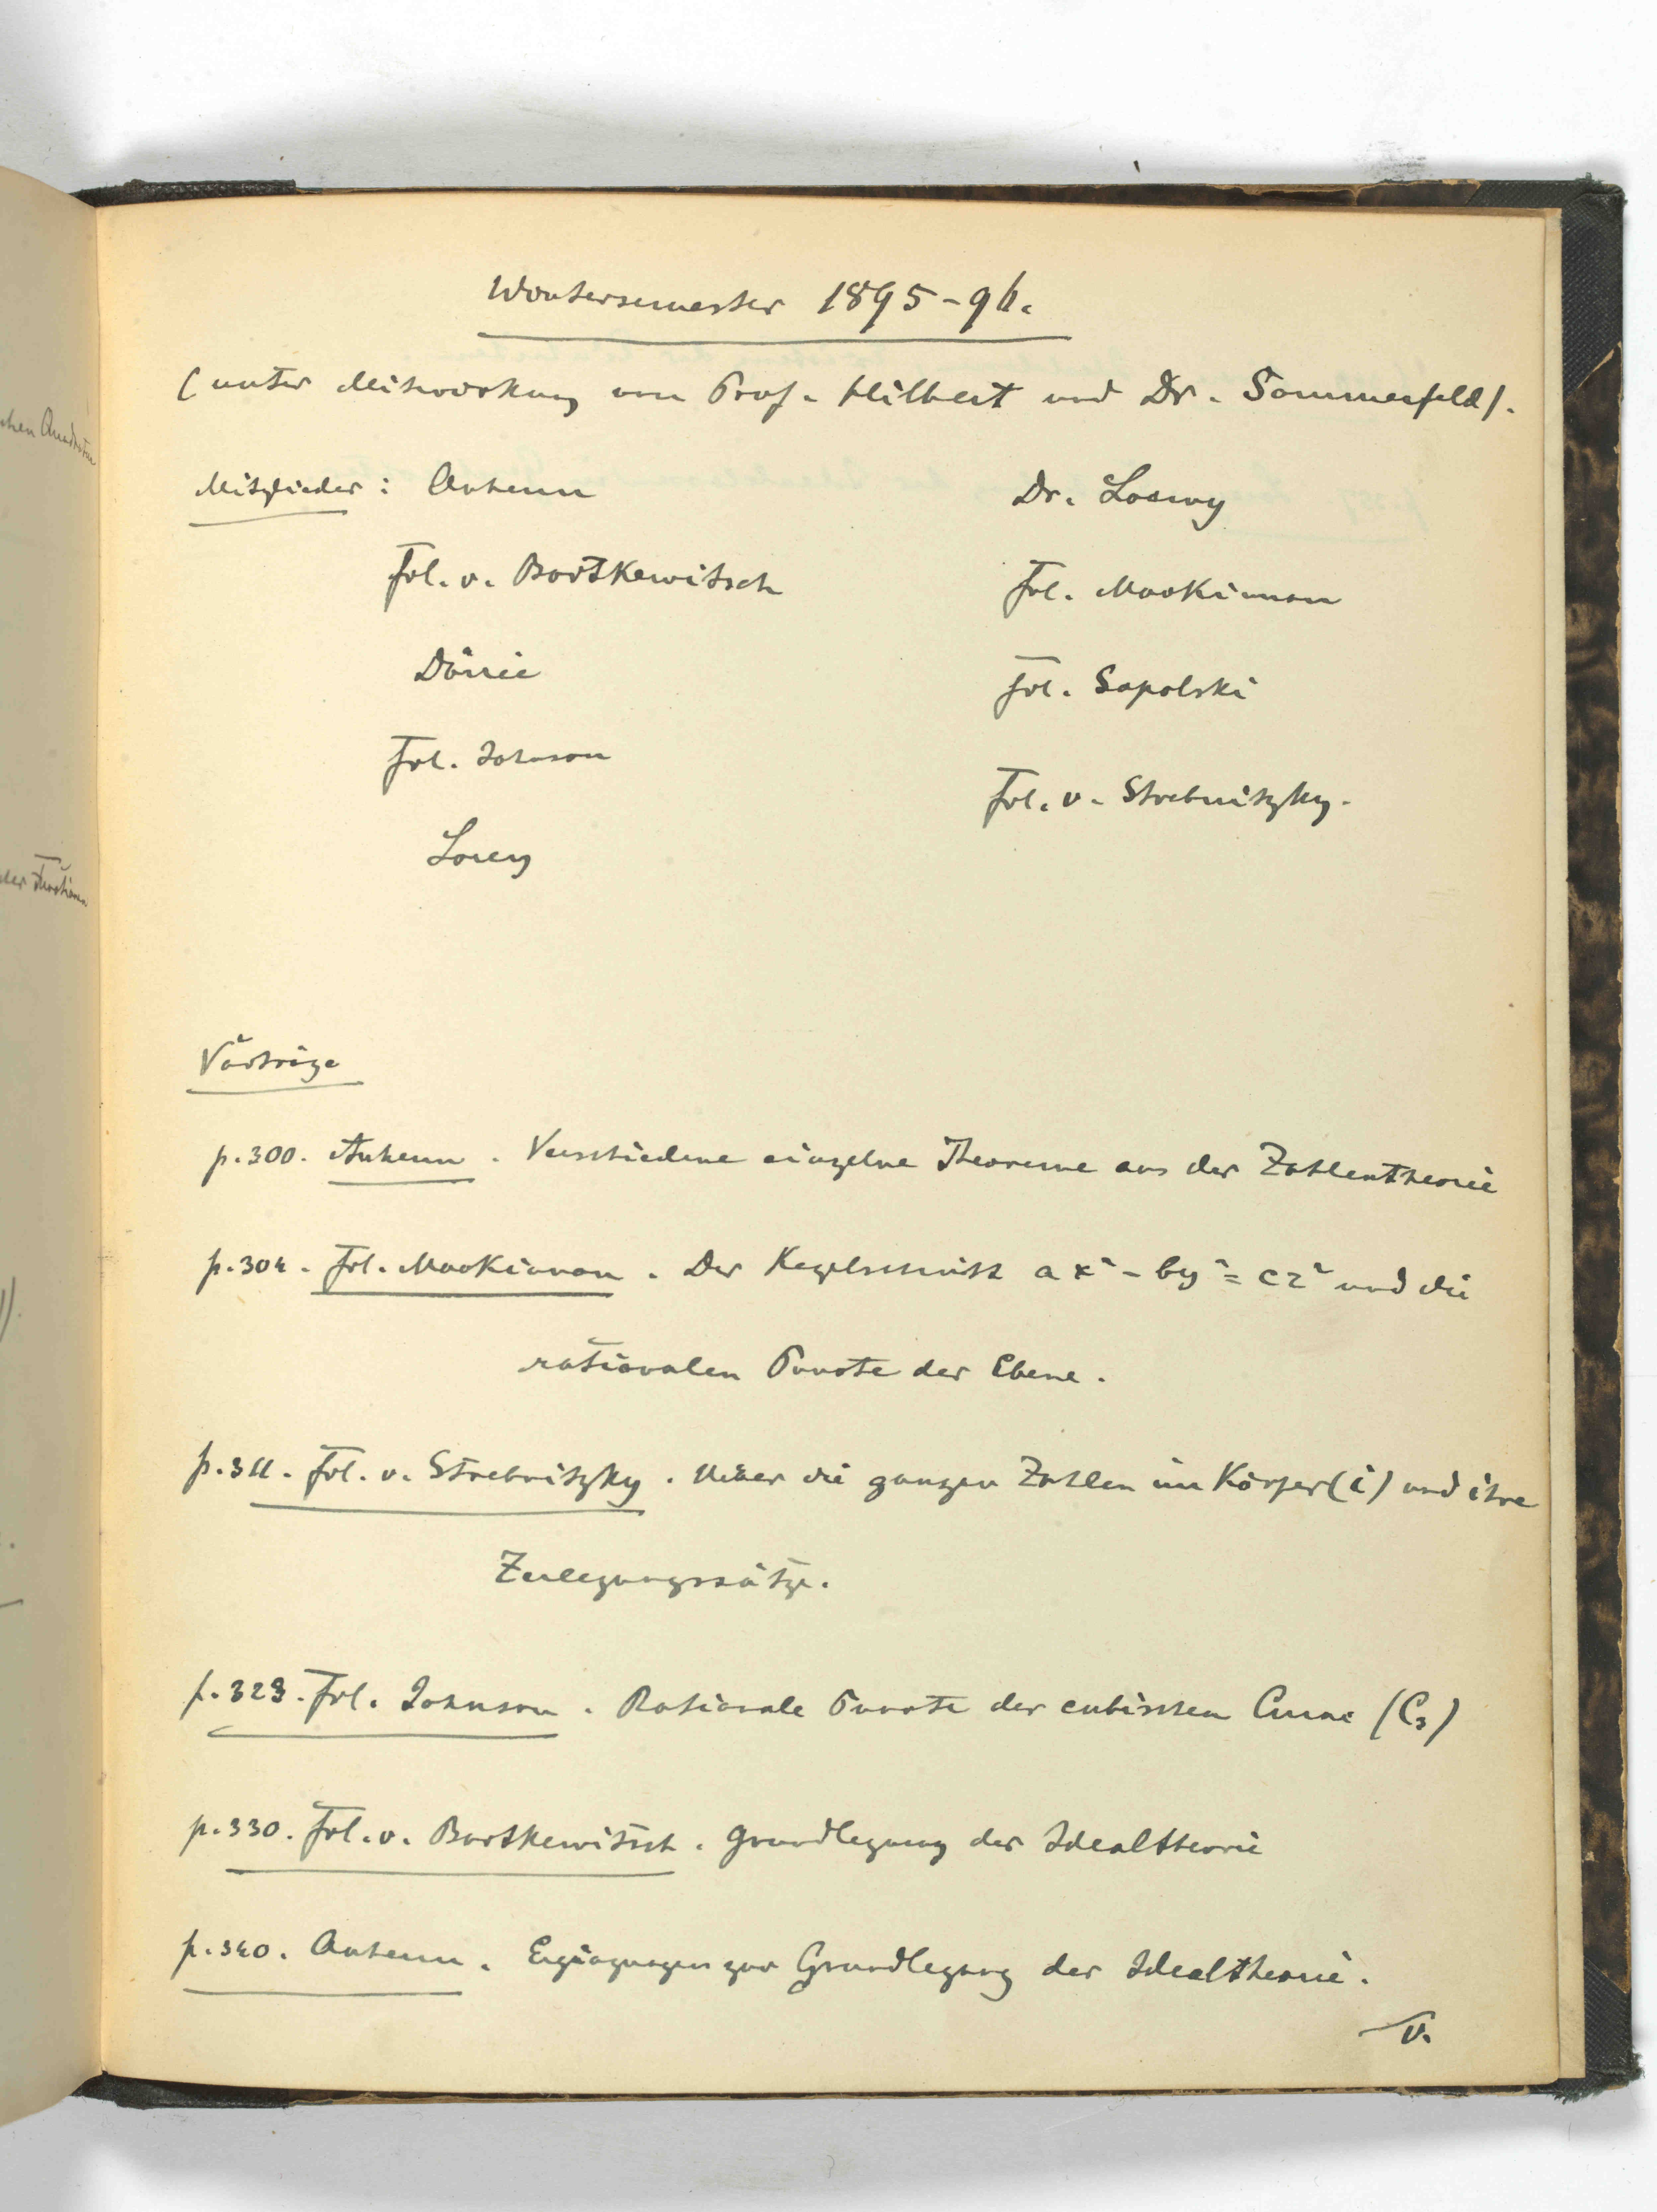 Wintersemester 1895-96.
(unter Mitwirkung von Prof. Hilbert und Dr. Sommerfeld).
Mitglieder: Ankenn Dr. Loewy
Frl. v. Bortkewitsch Frl. MacKinnon
Dörrie Frl. Sapolski
Frl. Johnson Frl. v. Strebnitzky.
Lorey
Vorträge
p. 300. Ankenn. Verschiedene einzelne Theoreme aus der Zahlentheorie
p. 304. Frl. MacKinnon. Der Kegelschnitt ax² - by² = cz² und die
rationalen Puncte der Ebene.
p. 311. Frl. v. Strebnitzky. Ueber die ganzen Zahlen im Körper (i) und ihre
Zerlegungssätze.
p. 323. Frl. Johnson. Rationale Puncte der cubischen Curve (C₃)
p. 330. Frl. v. Bortkewitsch. Grundlegung der Idealtheorie
p. 340. Ankenn. Ergänzungen zur Grundlegung der Idealtheorie.
V.